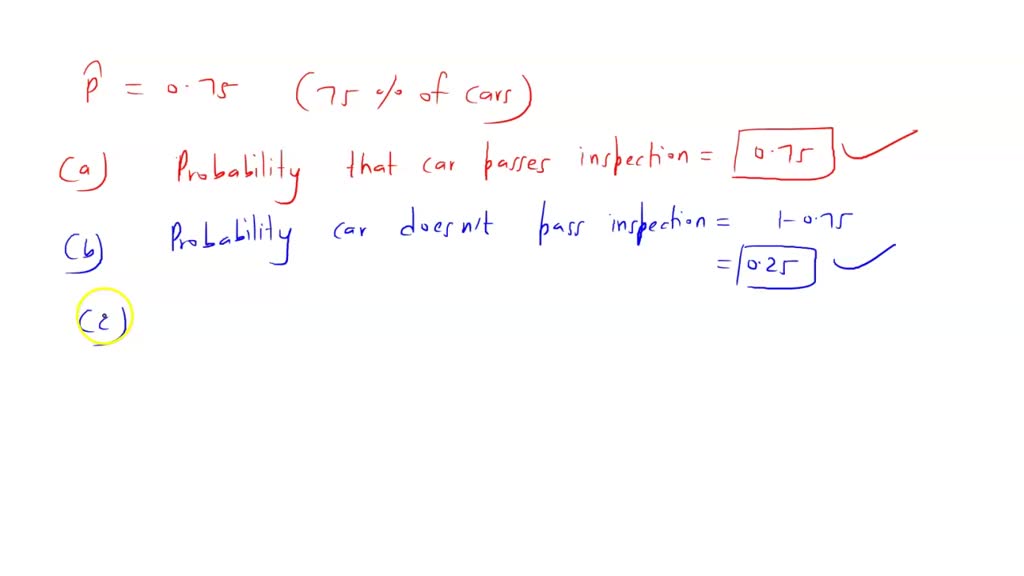 p̂ = 0.75 (75 % of cars)
(a) Probability that car passes inspection = 0.75
(b) Probability car doesn't pass inspection = 1-0.75
= 0.25
(c)